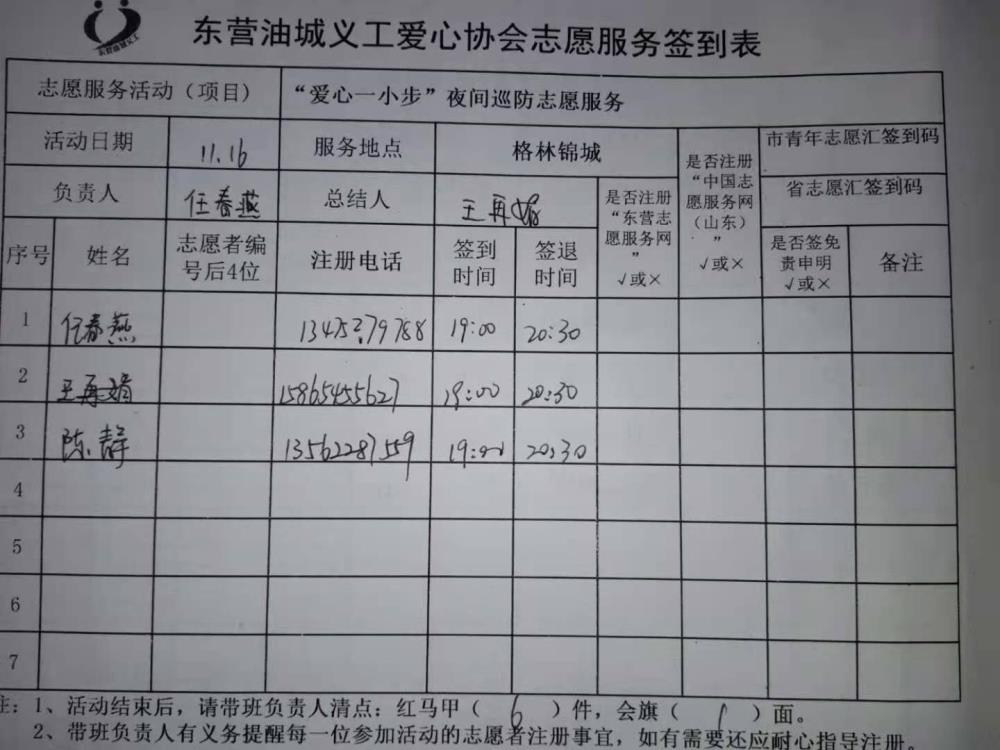 东营油城义工
东营油城义工爱心协会志愿服务签到表
志愿服务活动（项目） “爱心一小步”夜间巡防志愿服务
活动日期 11.16 服务地点 格林锦城 是否注册“中国志愿服务网（山东）” √或× 市青年志愿汇签到码
负责人 任春燕 总结人 王再娟 是否注册“东营志愿服务网” √或× 省志愿汇签到码
序号 姓名 志愿者编号后4位 注册电话 签到时间 签退时间 是否签免责申明 √或× 备注
1 任春燕 13452279788 19:00 20:30
2 王再娟 15865455627 19:00 20:30
3 陈静 13562287559 19:00 20:30
4
5
6
7
注：1、活动结束后，请带班负责人清点：红马甲（ 6 ）件，会旗（ 1 ）面。
2、带班负责人有义务提醒每一位参加活动的志愿者注册事宜，如有需要还应耐心指导注册.